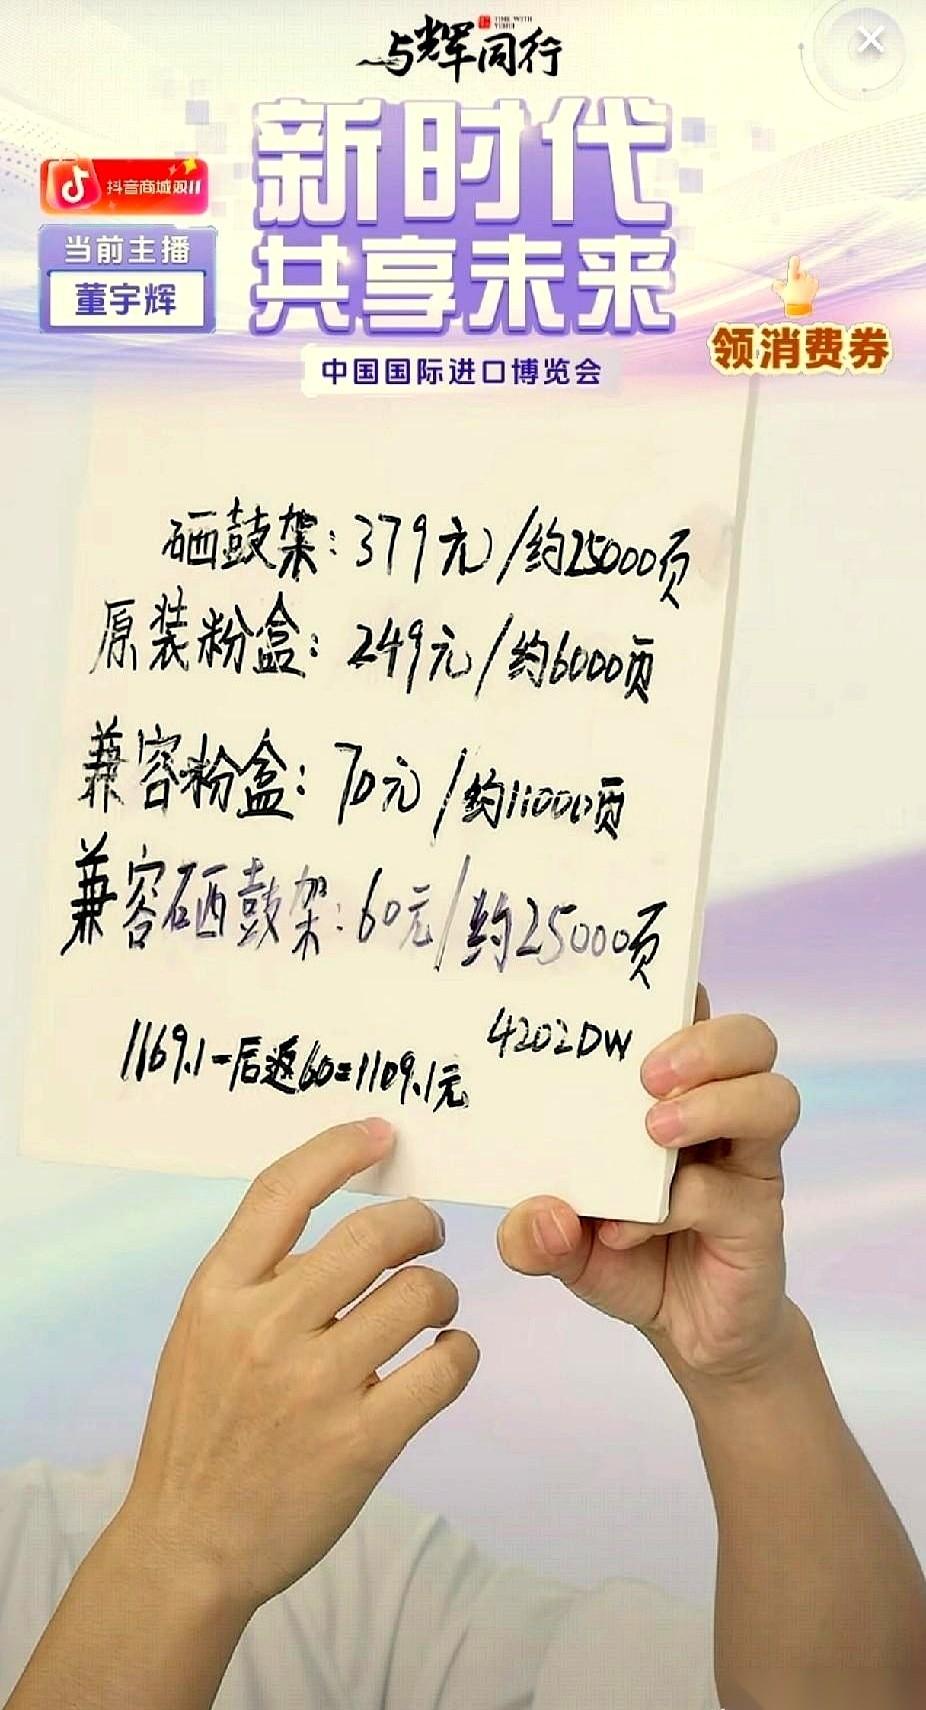 与辉同行
TIME WITH YUHUI
新时代
共享未来
抖音商城双11
当前主播
董宇辉
领消费券
中国国际进口博览会
硒鼓架:379元/约25000页
原装粉盒:249元/约6000页
兼容粉盒:70元/约11000页
兼容硒鼓架:60元/约25000页
4202DW
1169.1-后返60=1109.1元